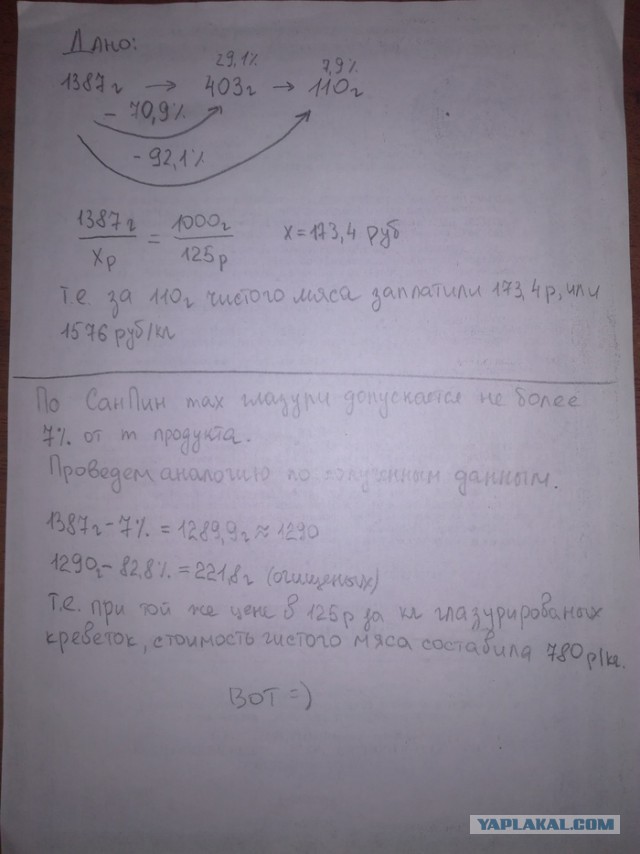 Дано:
29,1% 7,9%
1387г → 403г → 110г
- 70,9%
- 92,1%
1387г / Xр = 1000г / 125р X=173,4 руб
т.е. за 110г чистого мяса заплатили 173,4р, или
1576 руб/кг
По СанПин max глазури допускается не более
7% от m продукта.
Проведем аналогию по полученным данным.
1387г - 7% = 1289,9г ≈ 1290
1290г - 82,8% = 221,8г (очищеных)
т.е. при той же цене в 125р за кг глазурированых
креветок, стоимость чистого мяса составила 780р/кг.
ВОТ =)
YAPLAKAL.COM